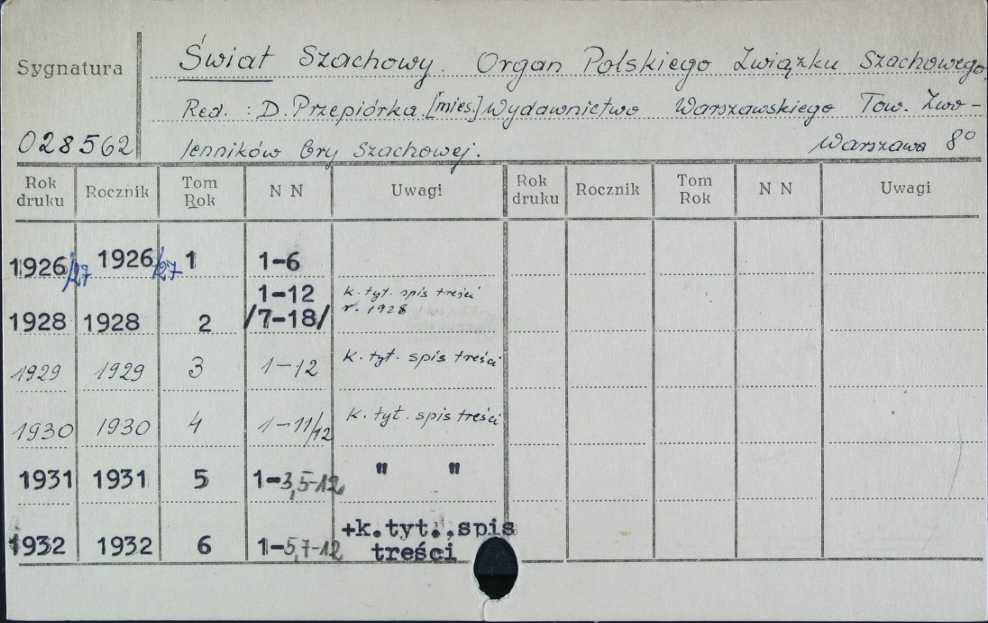 Świat Szachowy. Organ Polskiego Związku Szachowego.
Sygnatura
Red.: D. Przepiórka. [mies.] Wydawnictwo Warszawskiego Tow. Zwo-
028562 lenników Gry Szachowej. Warszawa 8°
Rok druku Rocznik Tom Rok N N Uwagi Rok druku Rocznik Tom Rok N N Uwagi
1926/27 1926/27 1 1-6
1-12 k. tyt. spis treści
1928 1928 2 /7-18/ r. 1928
1929 1929 3 1-12 k. tyt. spis treści
1930 1930 4 1-11/12 k. tyt. spis treści
1931 1931 5 1-3,5-12 " "
+k.tyt.,spis
1932 1932 6 1-5,7-12 treści